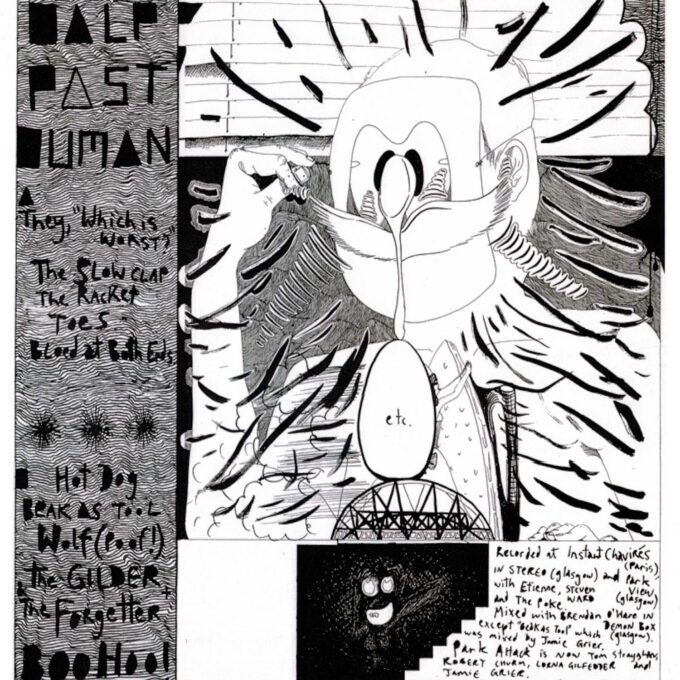 HALF
PAST
HUMAN
A
They, "Which is
worst?"
The Slow clap
The Racket
Toes
Blood at Both Ends
B
Hot Dog
Beak as Tool
Wolf (Poof!)
The GILDER
& The Forgetter
BooHoo!
etc.
Recorded at Instant Chavirés
(Paris)
IN STEREO (glasgow) and Park
View
with Etienne, Steven
WARD (glasgow)
and The Poke.
Mixed with BRENDAN O'HARE IN
DEMON BOX
except "Beak as Tool" which (glasgow).
was mixed by Jamie Grier.
Park Attack is now Tom Straughan,
ROBERT CHURM, LORNA GILFEDDER and
JAMIE GRIER.